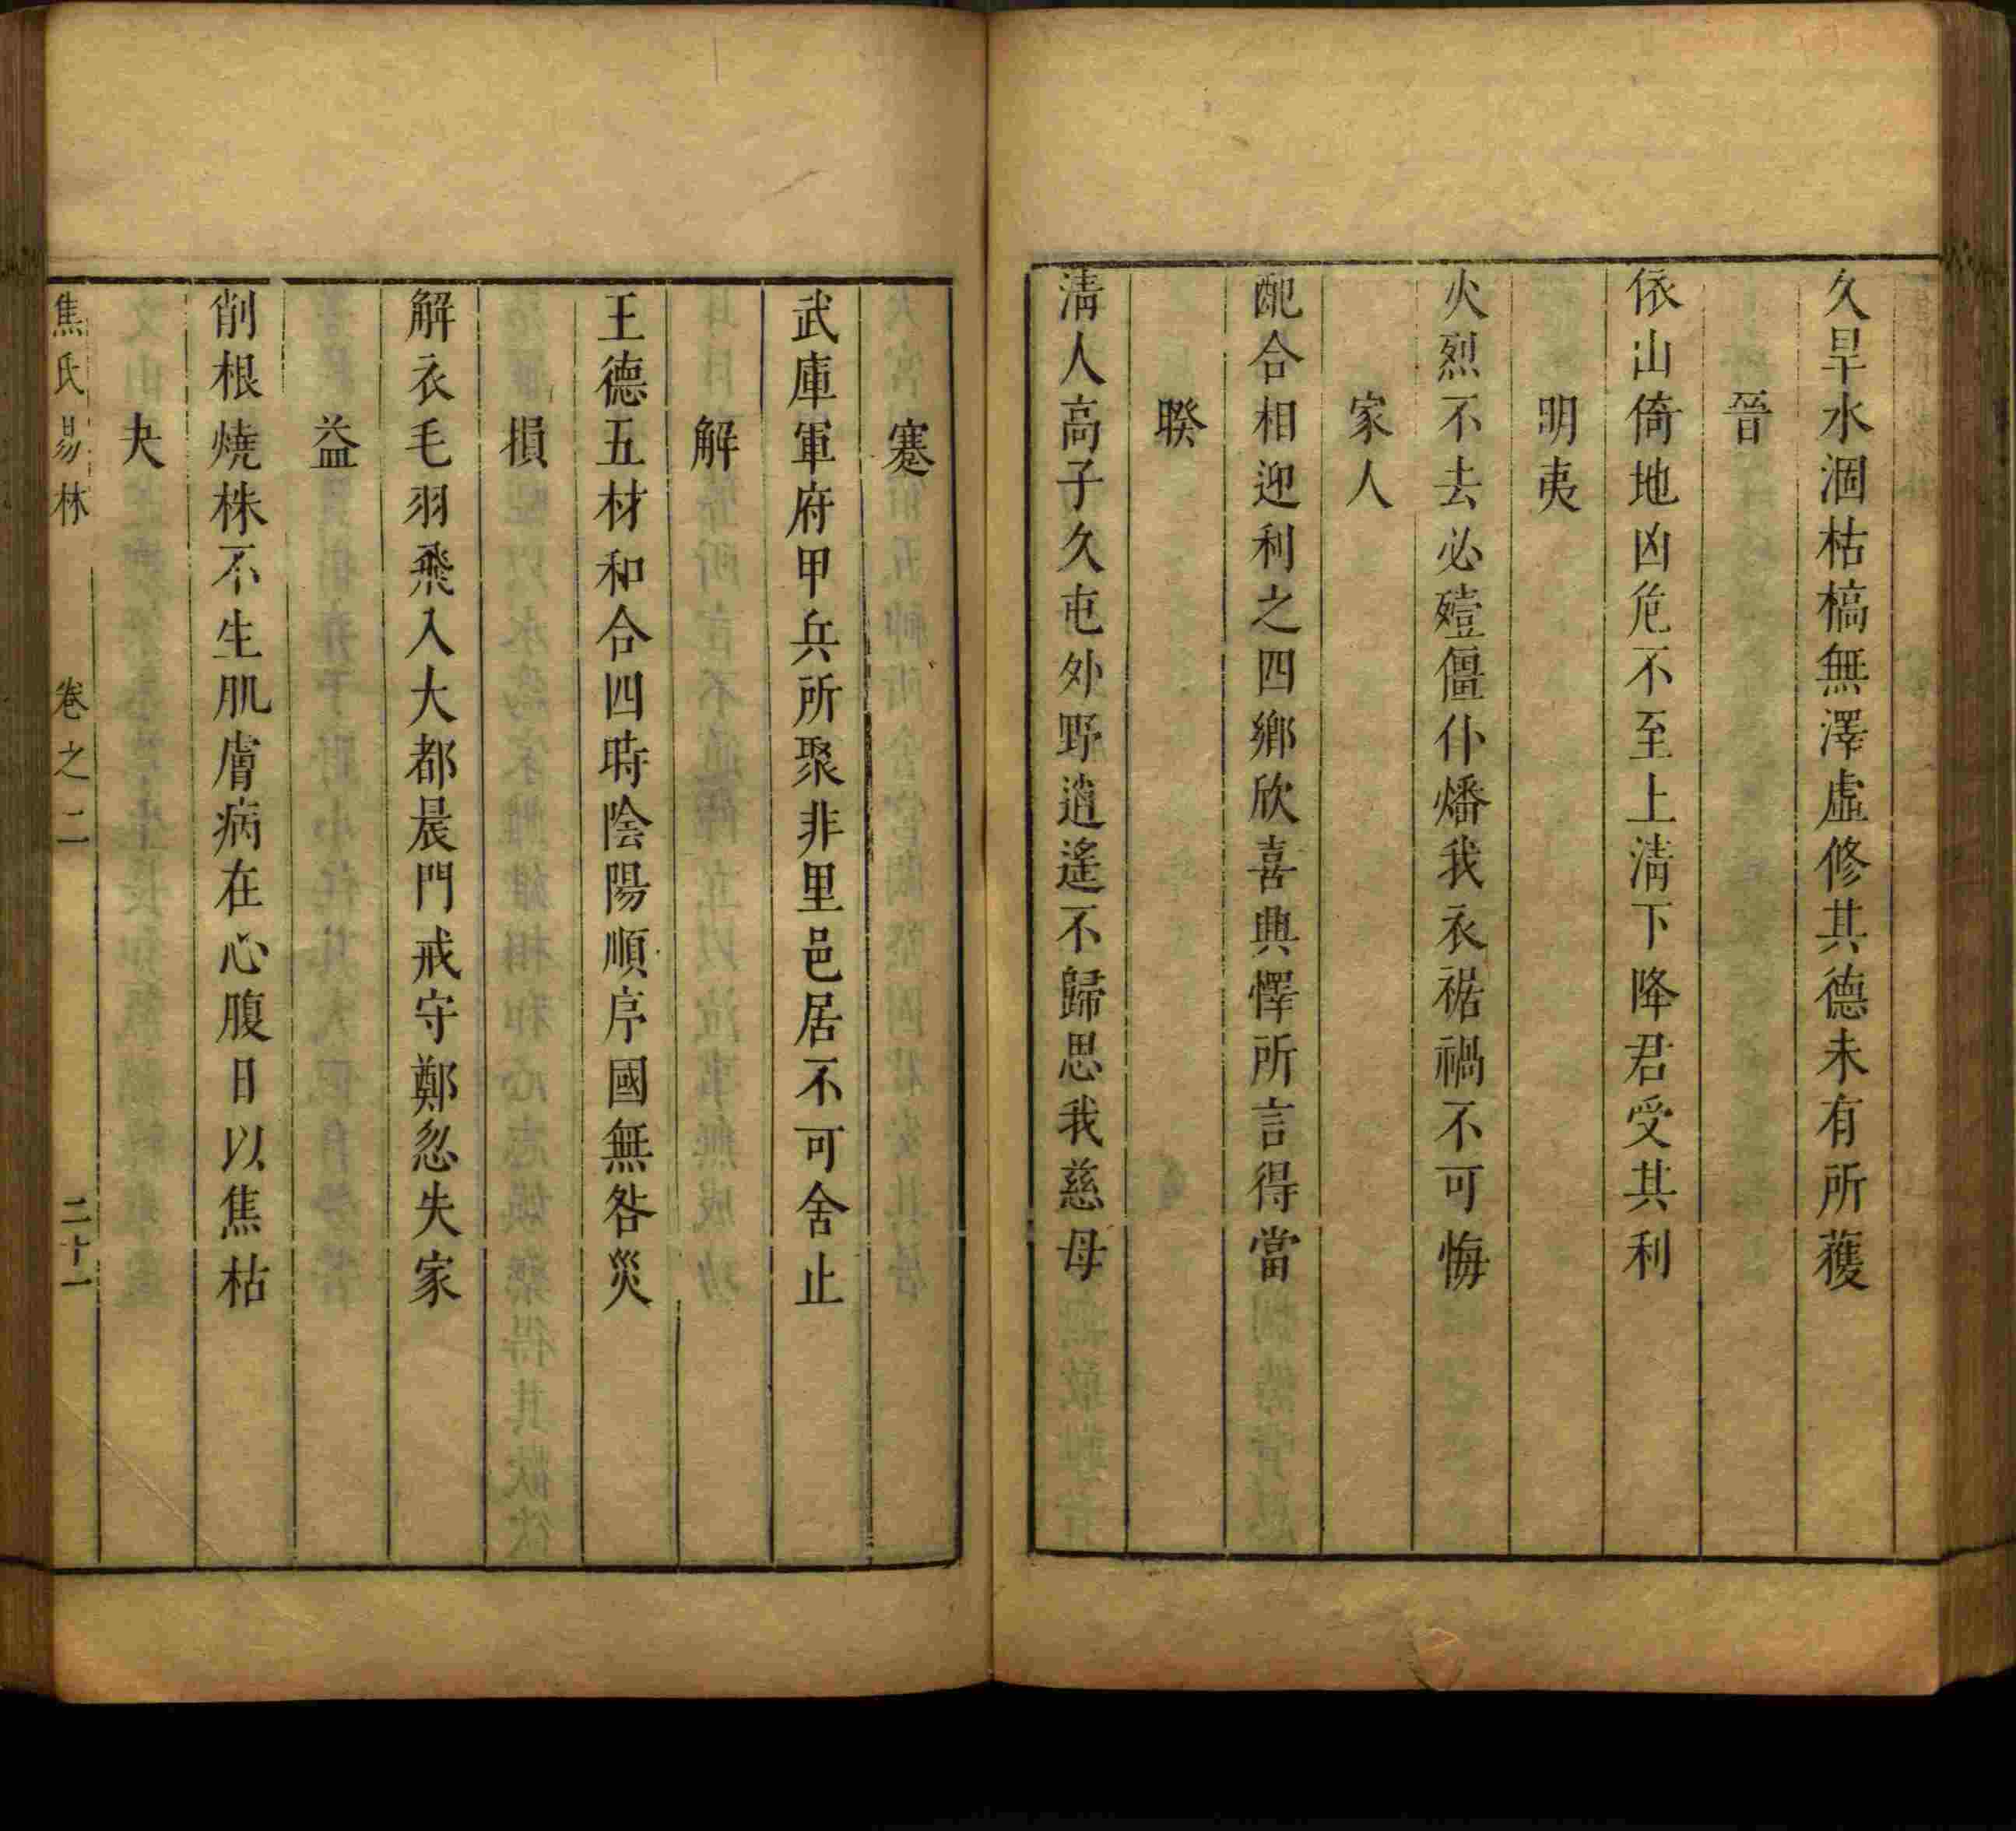 久旱水涸枯槁無澤虛修其德未有所獲
晉
依山倚地凶危不至上淸下降君受其利
明夷
火烈不去必殪僵仆燔我衣裾禍不可悔
家人
配合相迎利之四鄉欣喜興懌所言得當
睽
淸人高子久屯外野逍遙不歸思我慈母
蹇
武庫軍府甲兵所聚非里邑居不可舍止
解
王德五材和合四時陰陽順序國無咎災
損
解衣毛羽飛入大都晨門戒守鄭忽失家
益
削根燒株不生肌膚病在心腹日以焦枯
夬
焦氏易林 卷之二 二十一